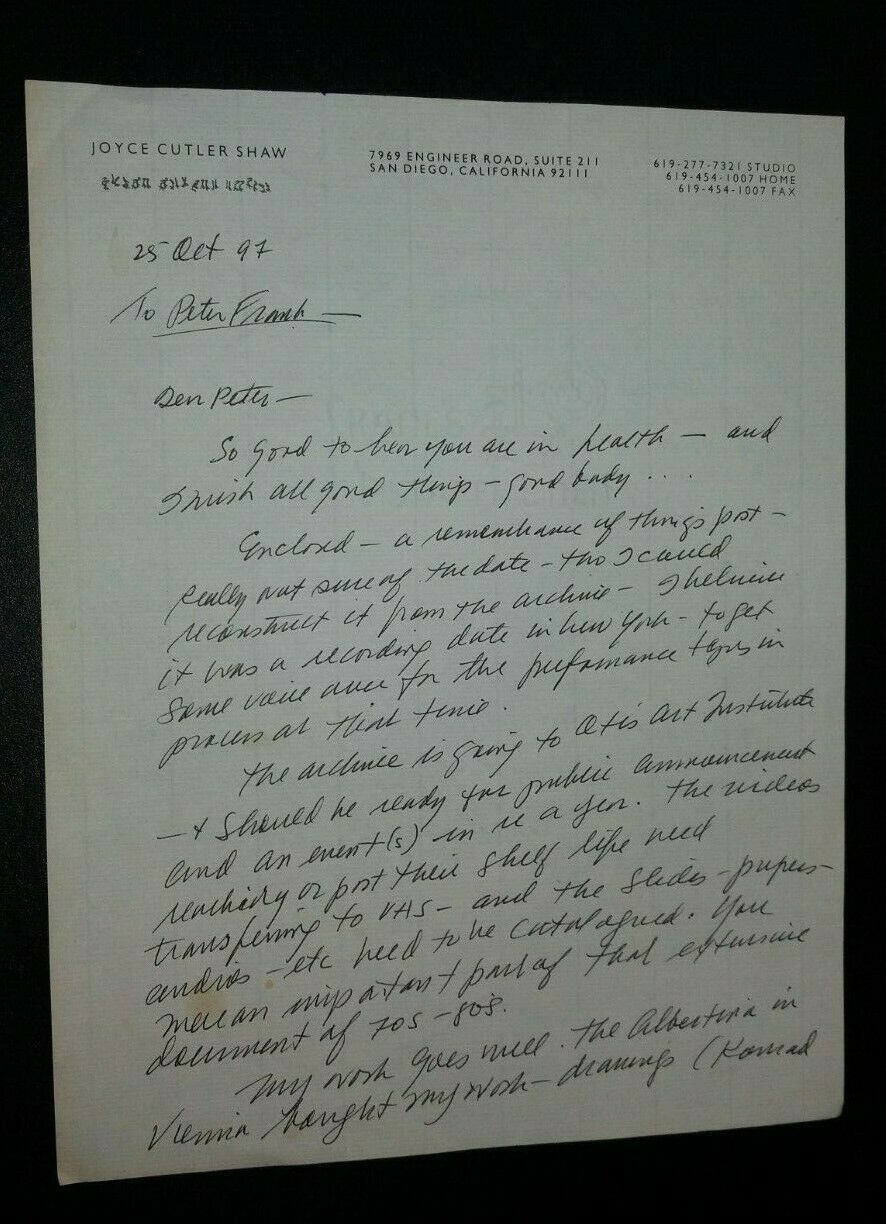 JOYCE CUTLER SHAW
7969 ENGINEER ROAD, SUITE 211
SAN DIEGO, CALIFORNIA 92111
619-277-7321 STUDIO
619-454-1007 HOME
619-454-1007 FAX
25 Oct 97
To Peter Frank —
Dear Peter —
So good to hear you are in health — and
I wish all good things – good body . . .
Enclosed – a remembrance of things past –
really not sure of the date – tho I could
reconstruct it from the archive – I believe
it was a recording date in New York – to get
some voice over for the performance tapes in
process at that time.
The archive is going to Otis Art Institute
— & should be ready for public announcement
and an event(s) in a year. The videos
reaching or past their shelf life need
transferring to VHS – and the slides – papers –
audios – etc need to be catalogued. You
are an important part of that extensive
document of 70s – 80s.
My work goes well. The Albertina in
Vienna bought my work – drawings (Konrad